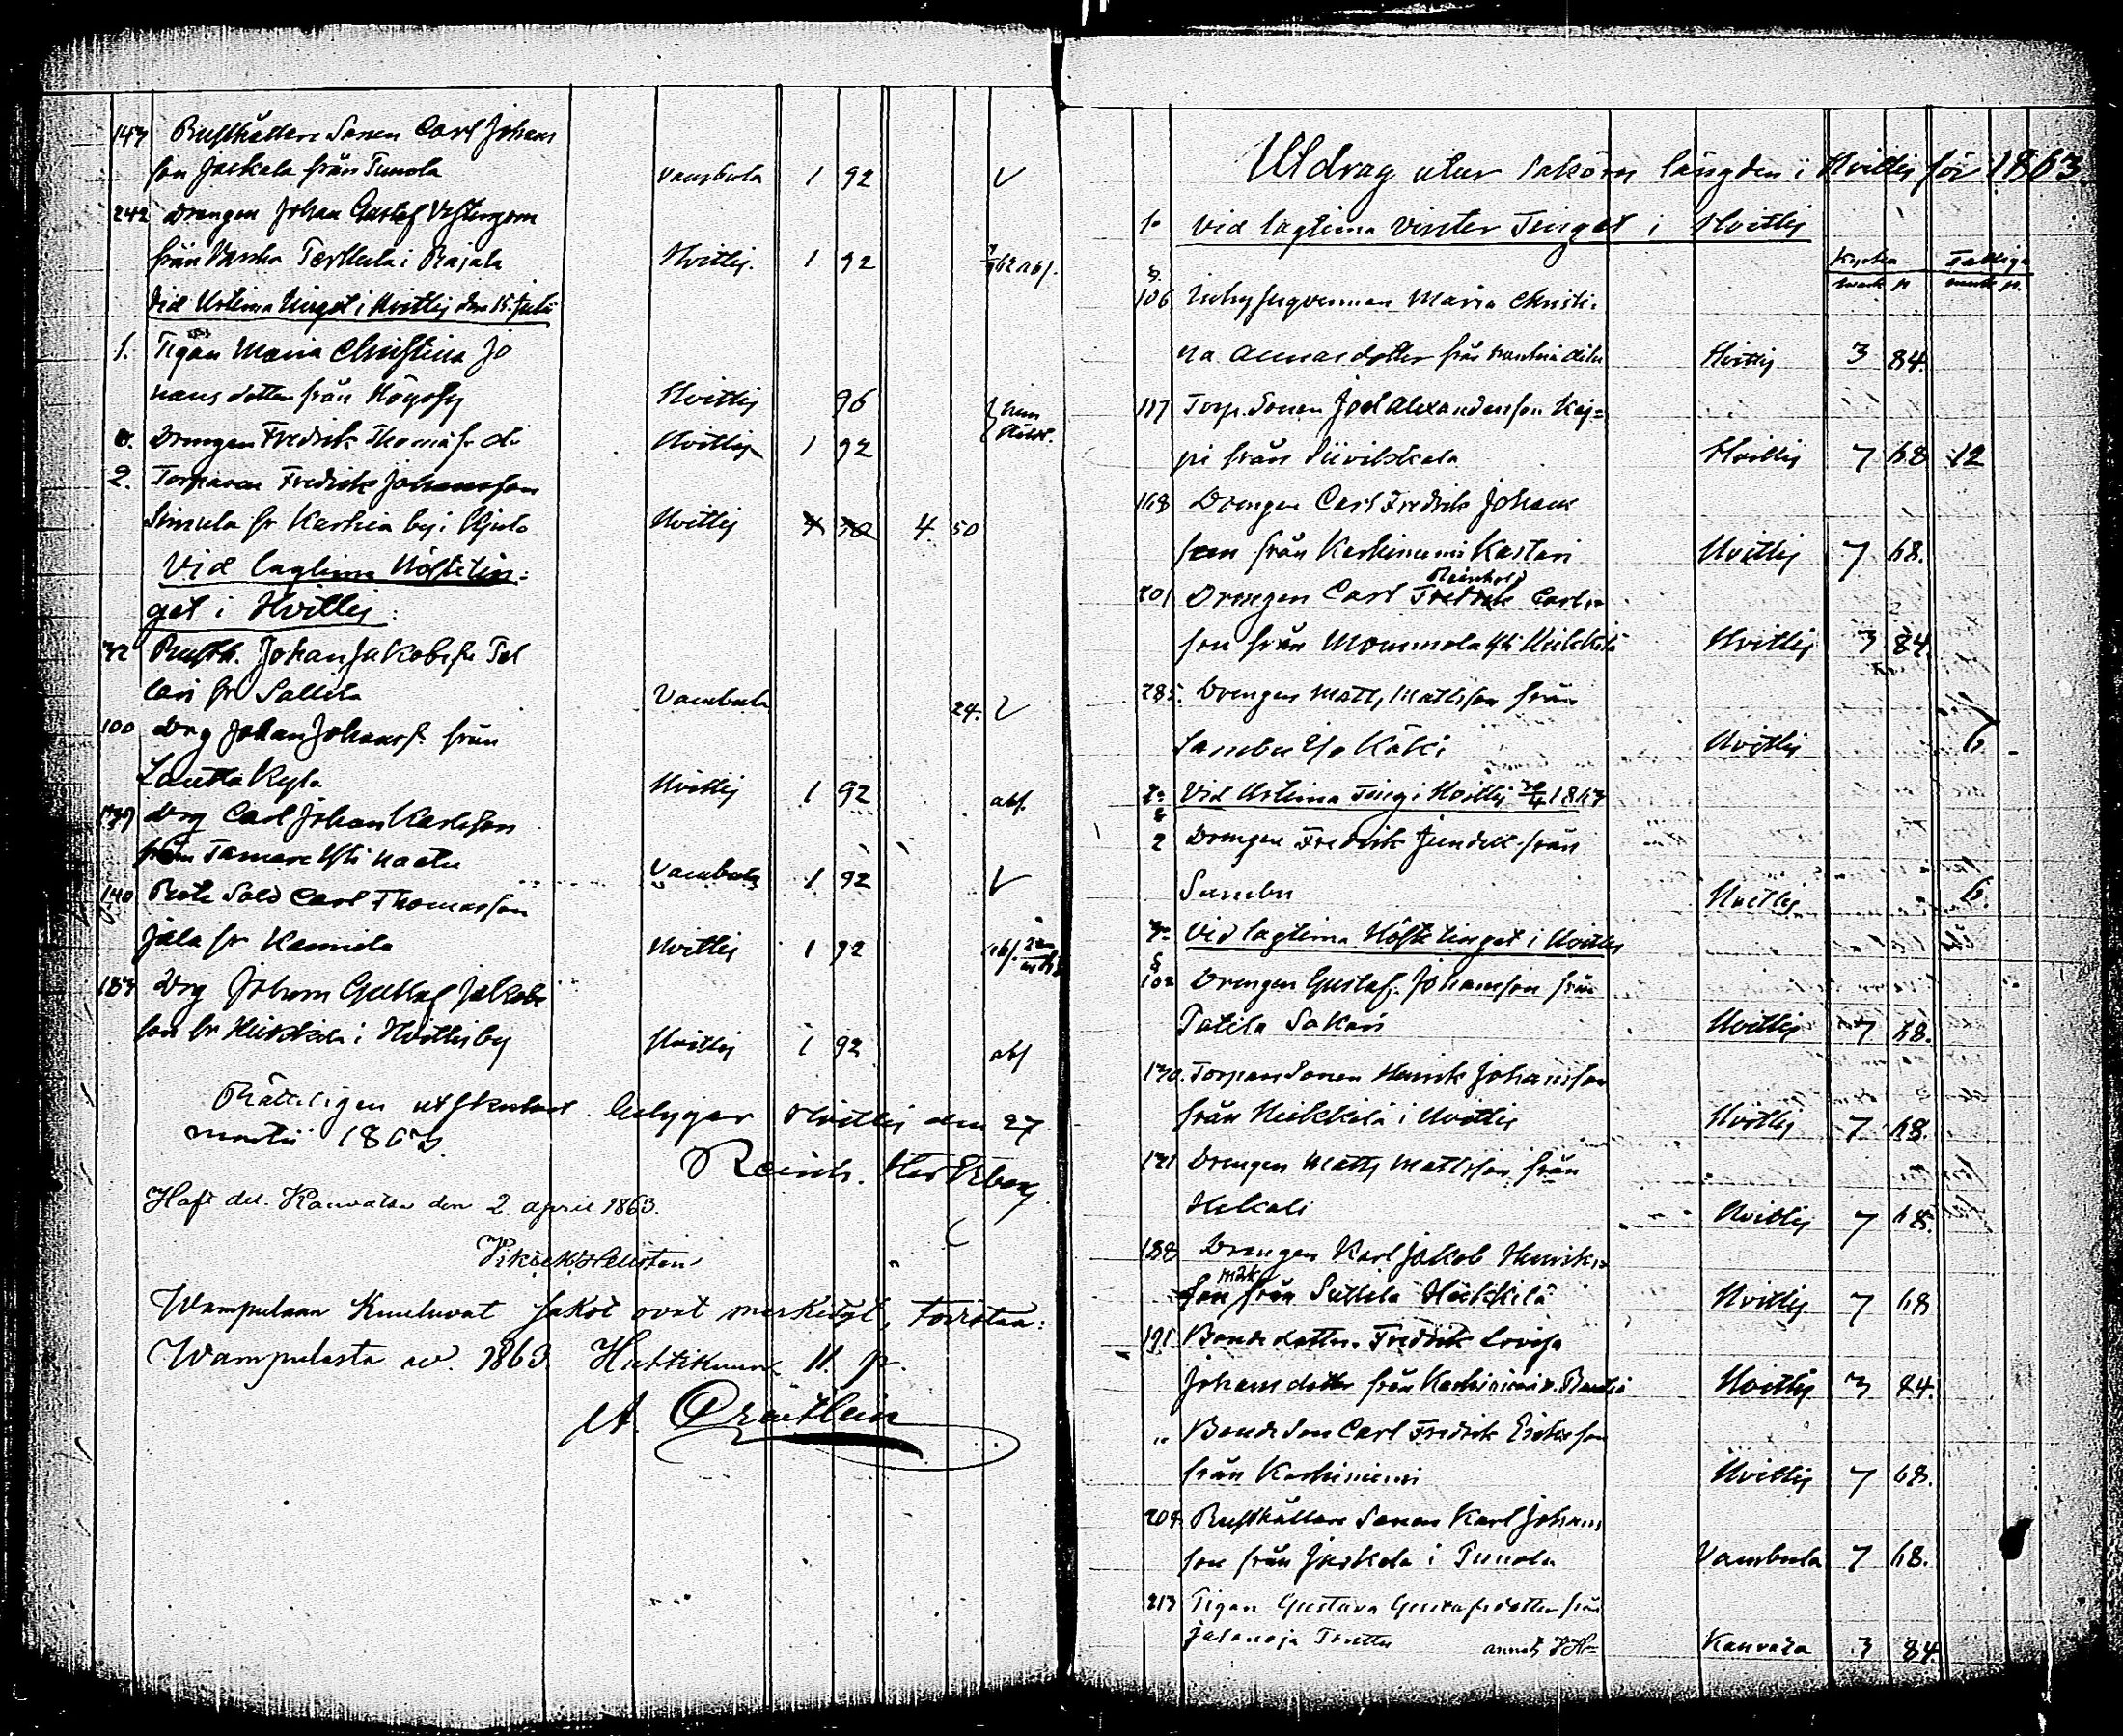 147 Rusthållare Sonen Carl Johans
son Jaskala från Tunola Vambula 1 92 V
242 Drengen Johan Gustaf
från Terttula i Rajala Hvittis. 1 92 abs.
Vid Urtima tinget i Hvittis den 15 Julii
1. Pigan Maria Christina Jo
hans dotter från Hvittis 96
Drengen Fredrik Thomas Hvittis 1 92
2. Torparen Fredrik Johansson
Simula fr Karhia by i Hvittis 4 50
Vid lagtima Höstetin=
get i Hvittis:
72 Rusth. Johan Jakobss. Tal
lari fr Sallila Vambula 24. V
100 Drg Johan Johanss. från
Lauttakylä Hvittis 1 92 abs.
139 Drg Carl Johan Karlsson
från Tamare Vambula 1 92 V
140 Rote Sold Carl Thomasson
Jala fr Kannila Hvittis 1 92 abs.
187 Drg Johan Gustaf Jakobs
son fr Heikkilä i Hvittisby Hvittis 1 92 abs
Rätteligen utskrifvet betygar Hvittis den 27
martii 1863. Reinh. Hertzberg
Haft del. Kauvatsa den 2 april 1863.
Wampulaan Kuuluvat sakot ovat merkityt, todistaa:
Wampulasta w. 1863 Huhtikuun 11. p.
A.
Utdrag utur Saköres längden i Hvittis för 1863.
1o Vid lagtima vinter Tinget i Hvittis
Kyrkan Fattiga
mark p. mark p.
§.
106 Inhyseqvinnan Maria Christi=
na Annasdotter från Hvittis 3 84.
117 Torp. Sonen Joel Alexandersson Kej=
pi från Hvittis 7 68 12
168 Drengen Carl Fredrik Johans
son från Karhiniemi Kastari Hvittis 7 68.
Reinhold
201 Drengen Carl Fredrik Carls=
son från Mommola Heikkilä Hvittis 3 84.
285. Drengen Matts Mattsson från
Sambu Käki Hvittis 6 -
2o Vid Urtima Ting i Hvittis 1863
§
2 Drengen Fredrik från
Sambu Hvittis 6.
3o Vid lagtima Höste tinget i Hvittis
§
102 Drengen Gustaf Johansson från
Sakari Hvittis 7 68.
130. Torpare Sonen Henrik Johansson
från Heikkilä i Hvittis Hvittis 7 68.
131 Drengen Matts Mattsson från
Hvittis 7 68.
188 Drengen Karl Jakob Henriks=
son från Suttila Heikkilä Hvittis 7 68
191 Bonde dotter Fredrika Lovisa
Johans dotter från Karhiniemi Hvittis 3 84.
" Bonde Son Carl Fredrik Eriksson
från Karhiniemi Hvittis 7 68.
204. Rusthållare Sonen Karl Johans
son från Jaskala i Tunola Vambula 7 68.
213 Pigan Gustava Gustafsdotter från
Jalanoja Tonttu Kauvatsa 3 84